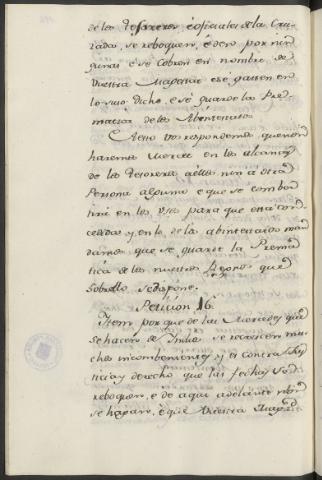 de los Tesoreros, é oficiales de la Cru-
zada, se reboquen, é den por nin-
gunas é se Cobren en nombre de
Vuestra Magestad é se gasten en
lo suso Dicho, e se guarde la Pre-
matica de los Abintestatos.
A esto Vos respondemos que non
haremos Merced en los alcances
de los Tesoreros a ellos nin a otra
Persona alguna e que se comber-
tirá en los Usos para que está con-
cedidas y en lo de la abintestatos man-
damos que se guarde la Prema-
tica de los nuestros Reynos que
sobrello se dispone.
Peticion 16.
Item, por que de las Mercedes que
se hacen de Indios se recrescen mu-
chos incombenientes y es contra Jus-
ticia y derecho que las fechas se
reboquen, é de aqui adelante non
se hagan, é que Vuestra Magestad